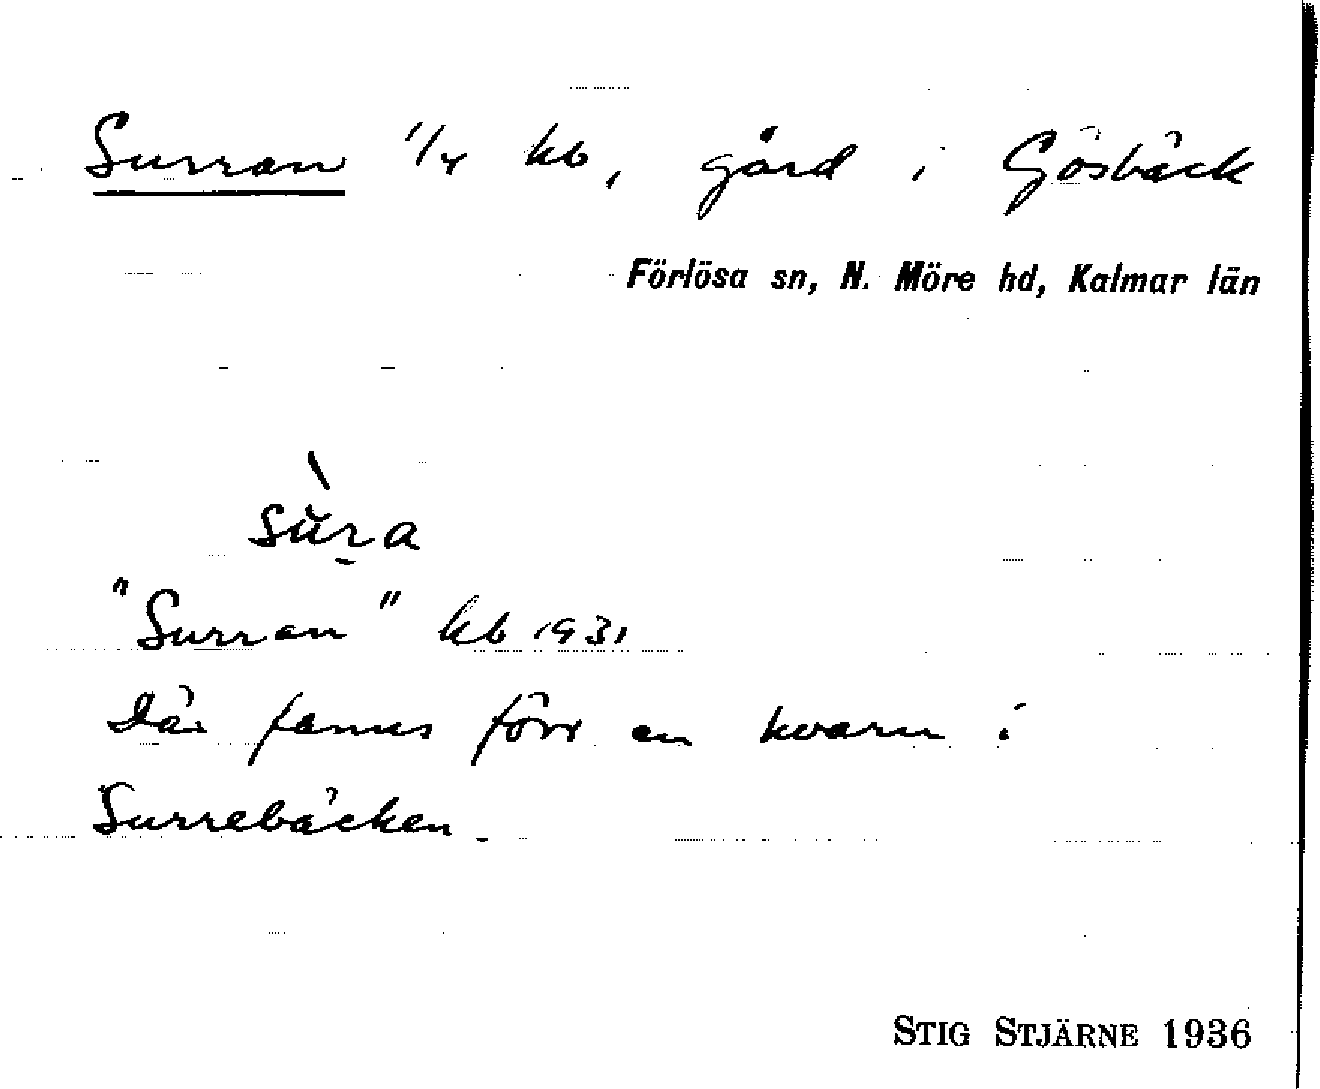 Surran 1/4 kb, gård i Gösbäck
Förlösa sn, N. Möre hd, Kalmar län
sùra
"Surran" kb 1931
Där fanns förr en kvarn i
Surrebäcken
STIG STJÄRNE 1936